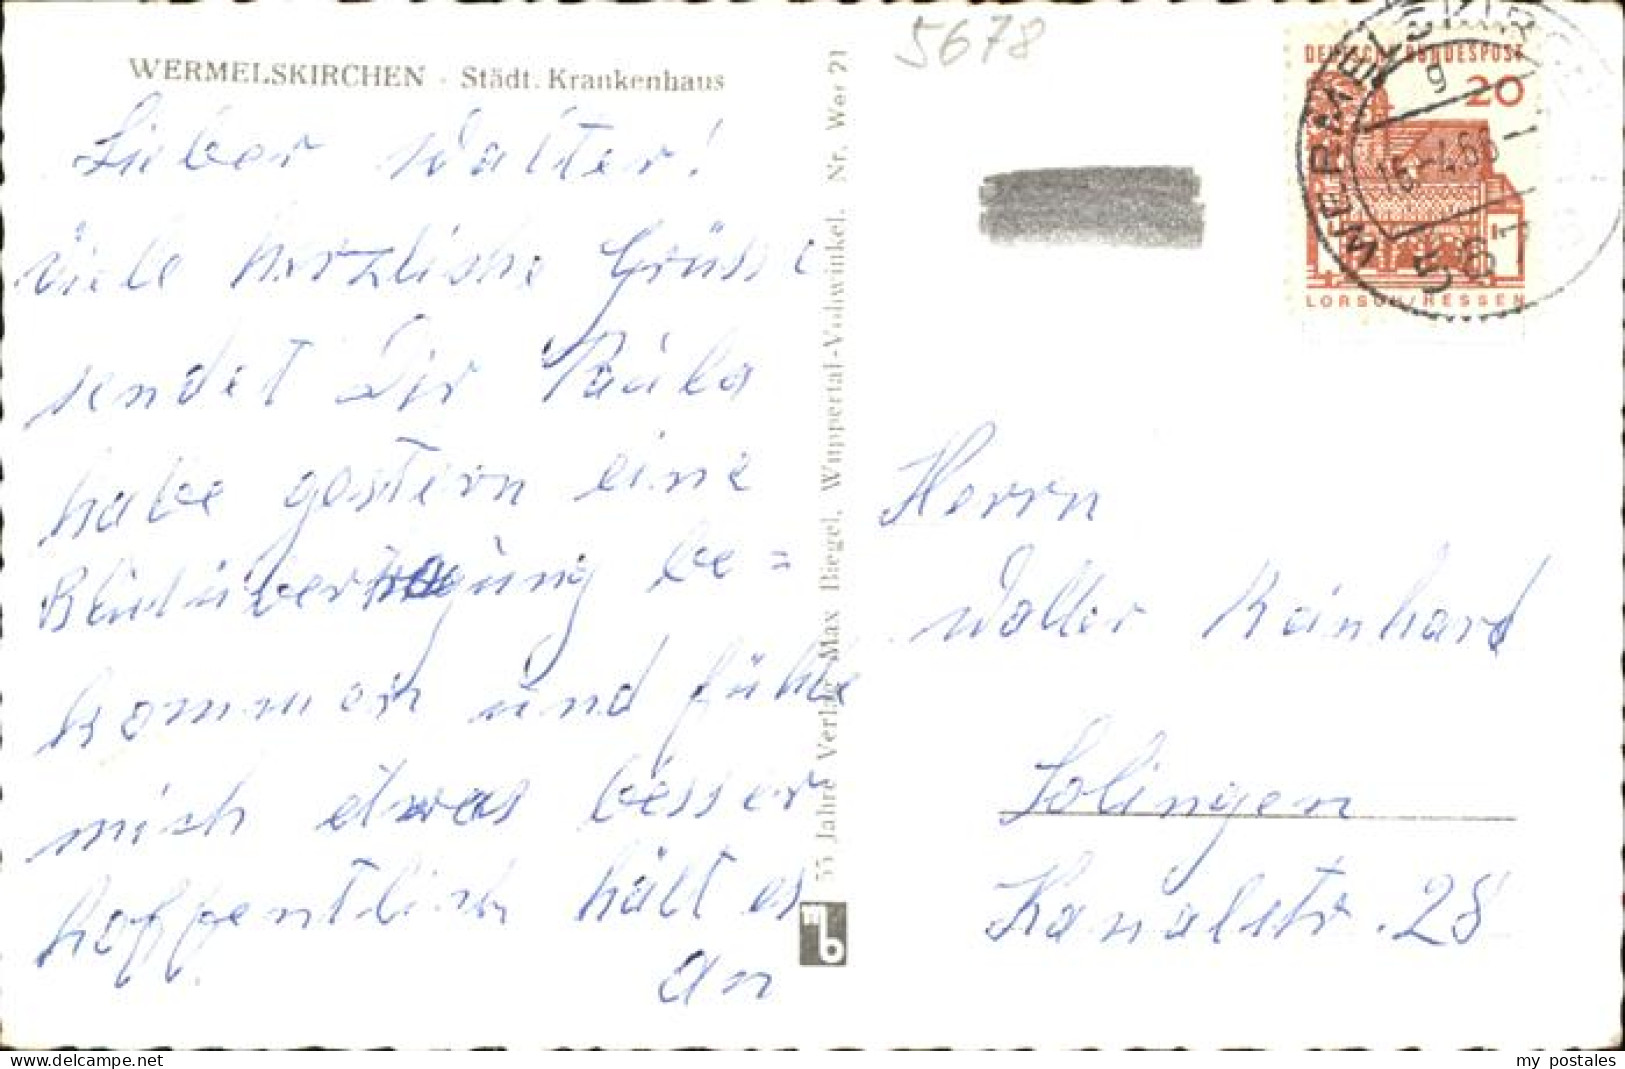 WERMELSKIRCHEN - Städt. Krankenhaus
Lieber Walter!
viele herzliche Grüsse
sendet Dir Paula
habe gestern eine
Blutübertragung be=
kommen und fühle
mich etwas besser
hoffentlich hält es
an
55 Jahre Verlag Max Biegel, Wuppertal-Vohwinkel. Nr. Wer 21
mb
5678
DEUTSCHE BUNDESPOST
20
LORSCH/HESSEN
WERMELSKIRCHEN
g
561
Herrn
Walter Reinhard
Solingen
Kanalstr. 28
www.delcampe.net
my postales